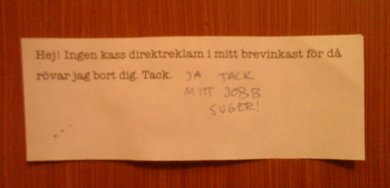 Hej! Ingen kass direktreklam i mitt brevinkast för då
rövar jag bort dig. Tack. JA TACK
MITT JOBB
SUGER!